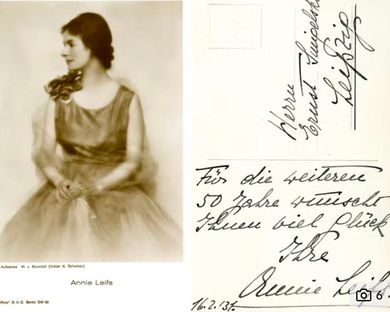 Aufnahme H. v. Bülovich (Atelier K. Schenker)
Annie Leifs
"Ross" B.V.G. Berlin SW 68
Herrn
Ernst
Leipzig
Für die weiteren
50 Jahre wünscht
Ihnen viel Glück
Ihre
Annie Leifs
16.2.31.
6